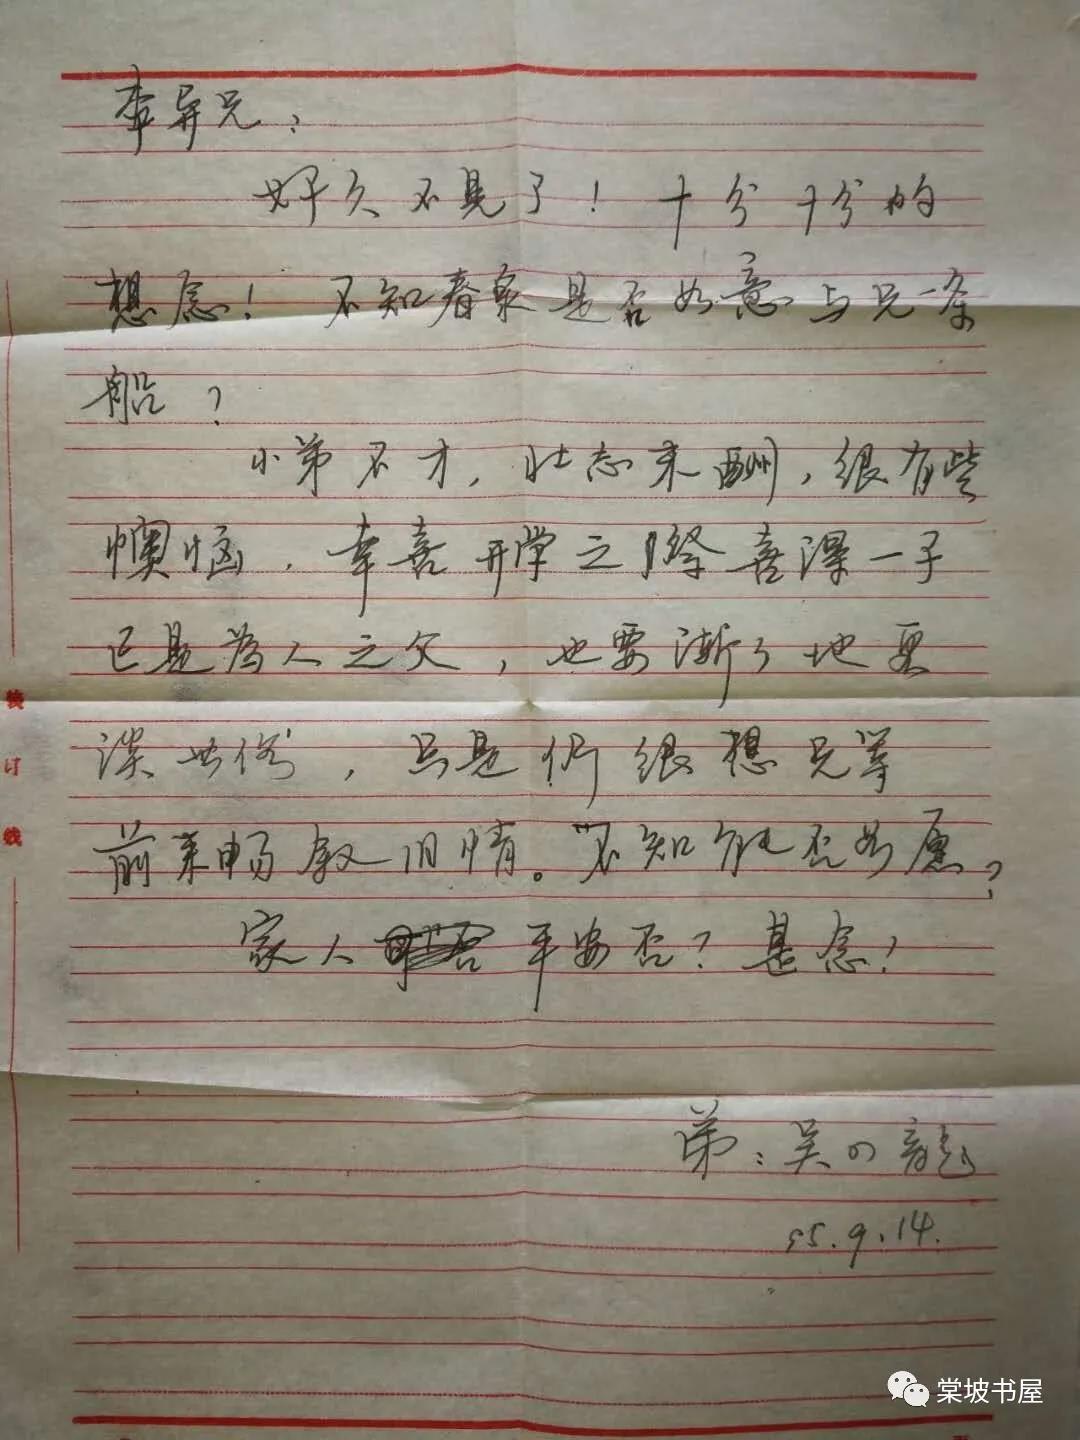 李异兄：
好久不见了！十分十份的
想念！不知春泉是否如意与兄一条
船？
小弟不才，壮志未酬，很有些
懊恼，幸喜开学之际喜得一子
已是为人之父，也要渐渐地要
谈世俗，只是仍很想兄等
前来畅叙旧情。不知能否如愿？
家人平安否？甚念！
弟：吴
95.9.14.
装订线
棠坡书屋